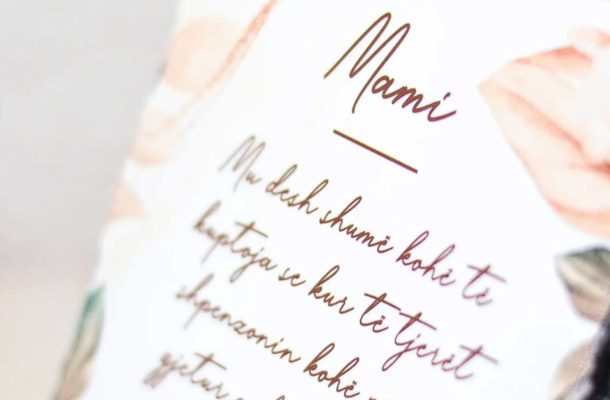 Mami
Mu desh shumë kohë të
kuptoja se kur të tjerët
shpenzonin kohë
gjetur